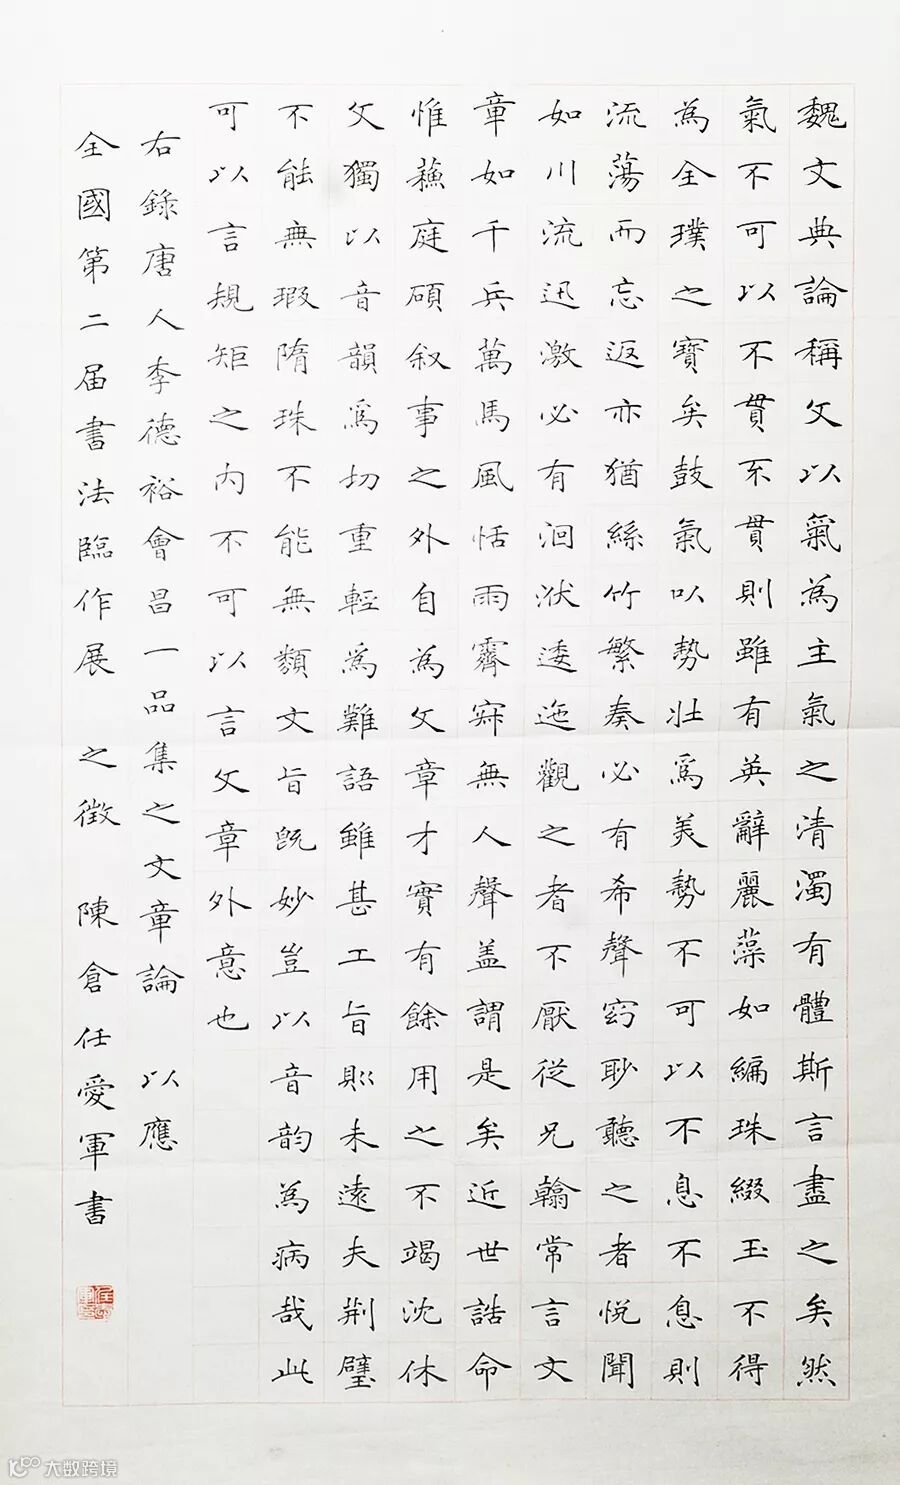 魏文典論稱文以氣為主氣之清濁有體斯言盡之矣然
氣不可以不貫不貫則雖有英辭麗藻如編珠綴玉不得
為全璞之寶矣鼓氣以勢壯爲美勢不可以不息不息則
流蕩而忘返亦猶絲竹繁奏必有希聲窈眇聽之者悅聞
如川流迅激必有洄洑逶迤觀之者不厭從兄翰常言文
章如千兵萬馬風恬雨霽寂無人聲盖謂是矣近世誥命
惟蘓庭碩叙事之外自為文章才實有餘用之不竭沈休
文獨以音韻爲切重輕為難語雖甚工旨則未遠夫荆璧
不能無瑕隋珠不能無纇文旨既妙豈以音韵為病哉此
可以言規矩之內不可以言文章外意也
右錄唐人李德裕會昌一品集之文章論 以應
全國第二届書法臨作展之徵 陳倉任愛軍書
大数跨境